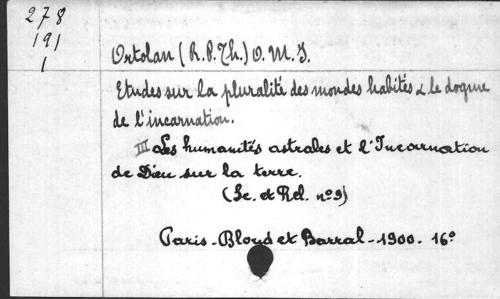 278
191
1
Ortolan (R.P. Th.) O. M. I.
Etudes sur la pluralité des mondes habités & le dogme
de l'incarnation.
III Les humanités astrales et l'Incarnation
de Dieu sur la terre.
(Sc. et Rel. nº9)
Paris - Bloud et Barral - 1900. 16º